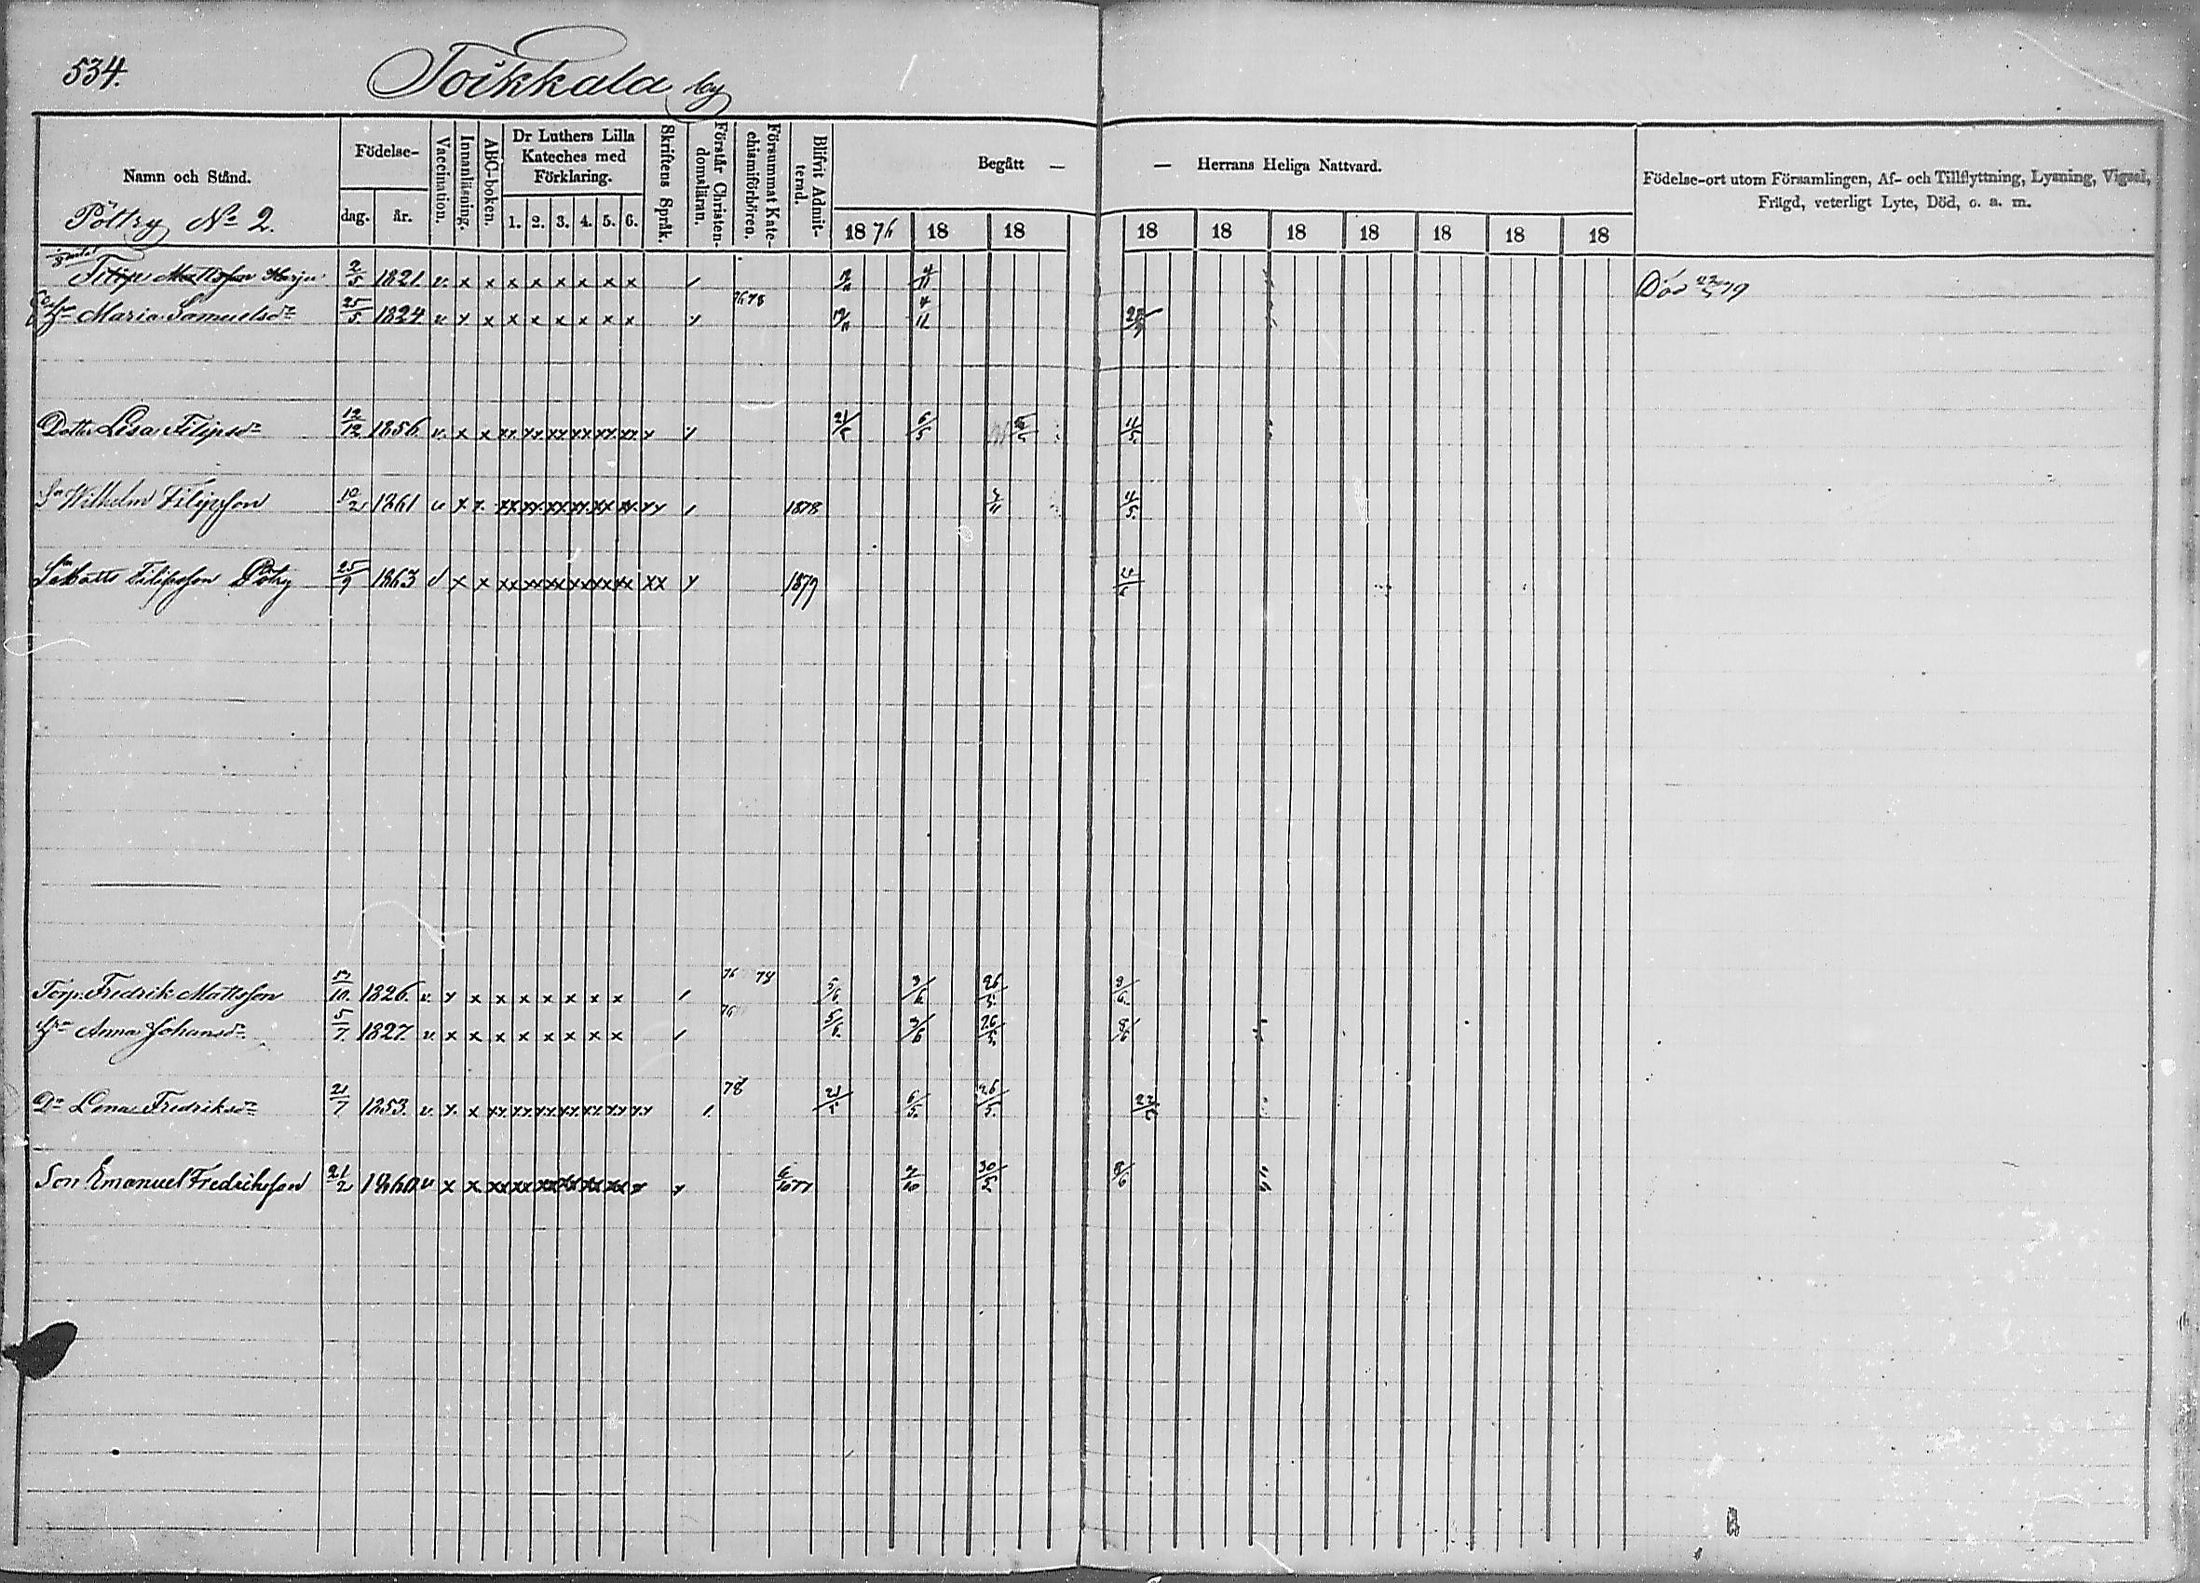 534.
Toikkala by
Namn och Stånd.
Pöltry No 2.
Födelse-
dag. år.
Vaccination.
Innanläsning.
ABC-boken.
Dr Luthers Lilla
Kateches med
Förklaring.
1. 2. 3. 4. 5. 6.
Skriftens Språk.
Förstår Christen-
domsläran.
Försummat Kate-
chismiförhören.
Blifvit Admit-
terad.
Begått — — Herrans Heliga Nattvard.
1876 18 18 18 18 18 18 18 18 18
Födelse-ort utom Församlingen, Af- och Tillflyttning, Lysning, Vigsel,
Frägd, veterligt Lyte, Död, o. a. m.
Filip Mattsson Harju 2/5 1821 v. x x x x x x x x 4/11 Död 79
Maria Samuelsdr 25/5 1824 v x x x x x x x x 76 78 4/11
Dottr Lisa Filipsdr 12/12 1856 v. x x xx xx xx xx xx xx x 21/5 6/5 4/5
Sn Wilhelm Filipsson 10/2 1861 v x x xx xx xx xx xx xx xx 1878 4/5
Sn Matts Filipsson Pöltry 25/9 1863 x x xx xx xx xx xx xx xx 1879
Torp. Fredrik Mattsson 13/10 1826 v. x x x x x x x x 76 78 5/6 3/6 26/5 8/6
Hu Anna Johansdr 5/7 1827 v. x x x x x x x x 76 5/6 3/6 26/5 8/6
Dr Lena Fredriksdr 21/7 1853 v. x x xx xx xx xx xx xx xx 78 21/5 6/5 26/5 22/5
Son Emanuel Fredriksson 21/2 1860 v x x xx xx xx xx xx xx x 6/10 77 7/10 30/5 8/6